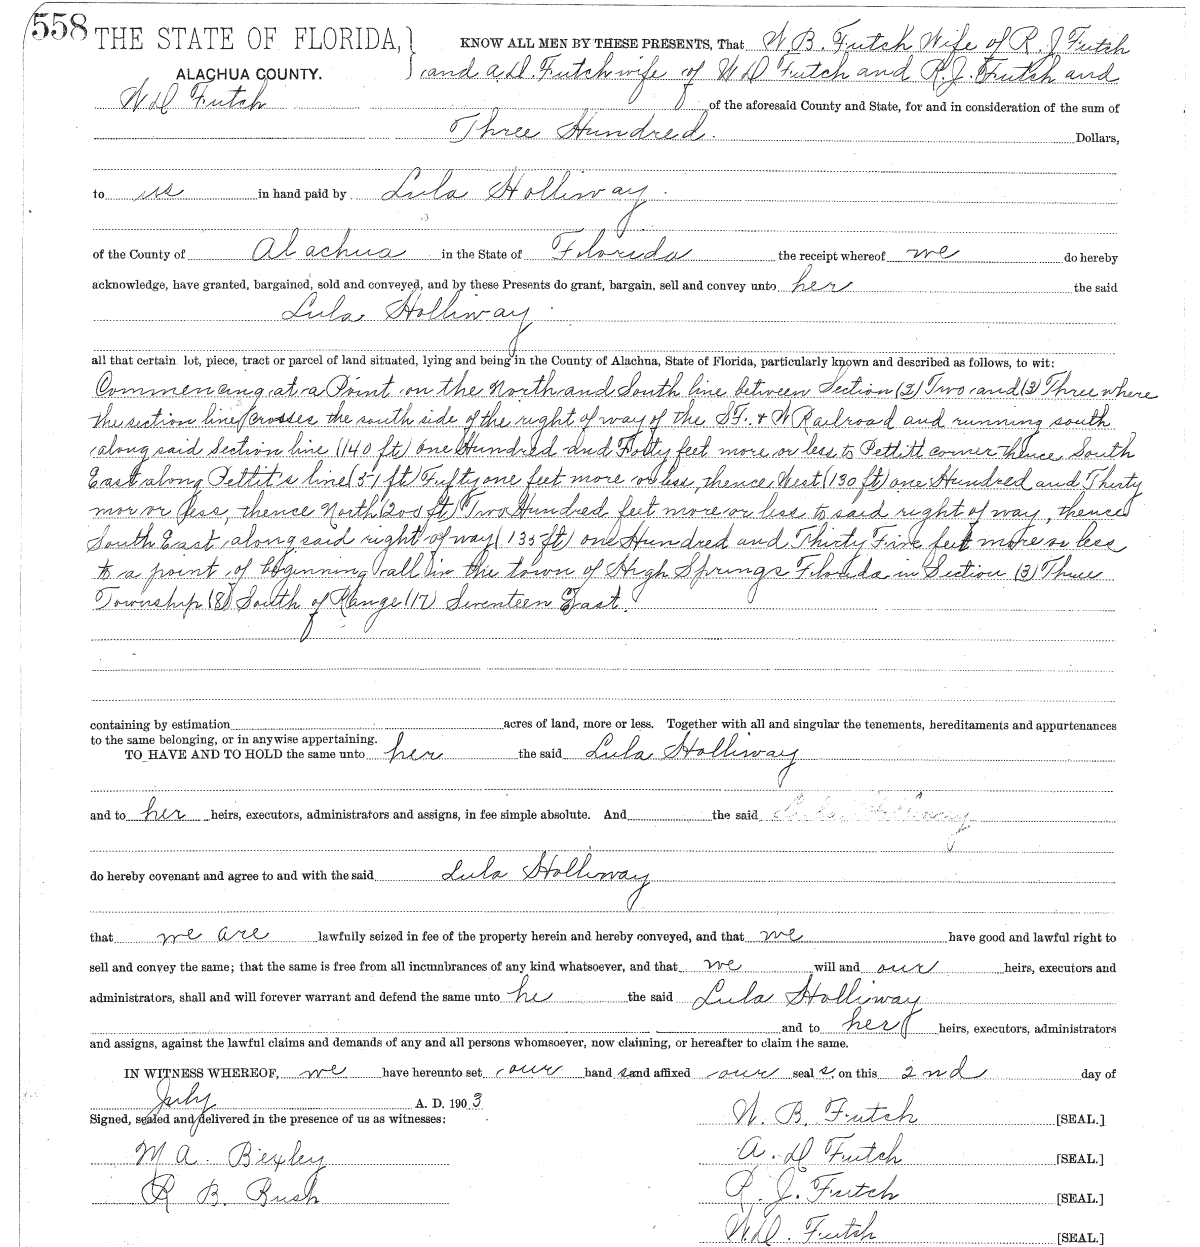 558 THE STATE OF FLORIDA,
KNOW ALL MEN BY THESE PRESENTS, That W. B. Futch Wife of R. J Futch
ALACHUA COUNTY.
and A.D. Futch wife of W D Futch and R. J. Futch and
W D Futch of the aforesaid County and State, for and in consideration of the sum of
Three Hundred. Dollars,
to us in hand paid by Lula Holliway.
of the County of Alachua in the State of Florida the receipt whereof we do hereby
acknowledge, have granted, bargained, sold and conveyed, and by these Presents do grant, bargain, sell and convey unto her the said
Lula Holliway.
all that certain lot, piece, tract or parcel of land situated, lying and being in the County of Alachua, State of Florida, particularly known and described as follows, to wit:
Commencing at a Point on the North and South line between Section (2) Two and (3) Three where
the section line crosses the south side of the right of way of the S.F. & W Railroad and running south
along said Section line (140 ft) one Hundred and Forty feet more or less to Pettitt corner thence South
East along Pettit's line (51 ft) Fifty one feet more or less, thence West (130 ft) one Hundred and Thirty
mor or less, thence North (200 ft) Two Hundred feet more or less to said right of way, thence
South East along said right of way (135 ft) one Hundred and Thirty Five feet more or less
to a point of beginning all in the town of High Springs Florida in Section (3) Three
Township (8) South of Range (17) Seventeen East.
containing by estimation acres of land, more or less. Together with all and singular the tenements, hereditaments and appurtenances
to the same belonging, or in anywise appertaining.
TO HAVE AND TO HOLD the same unto her the said Lula Holliway
and to her heirs, executors, administrators and assigns, in fee simple absolute. And the said Lula Holliway
do hereby covenant and agree to and with the said Lula Holliway
that we are lawfully seized in fee of the property herein and hereby conveyed, and that we have good and lawful right to
sell and convey the same; that the same is free from all incumbrances of any kind whatsoever, and that we will and our heirs, executors and
administrators, shall and will forever warrant and defend the same unto he the said Lula Holliway
and to her heirs, executors, administrators
and assigns, against the lawful claims and demands of any and all persons whomsoever, now claiming, or hereafter to claim the same.
IN WITNESS WHEREOF, we have hereunto set our hand s and affixed our seal s, on this 2nd day of
July A. D. 1903
Signed, sealed and delivered in the presence of us as witnesses:
W. B. Futch [SEAL.]
M A. Bexley
A. D Futch [SEAL.]
R B. Bush
R. J. Futch [SEAL.]
W.D. Futch [SEAL.]